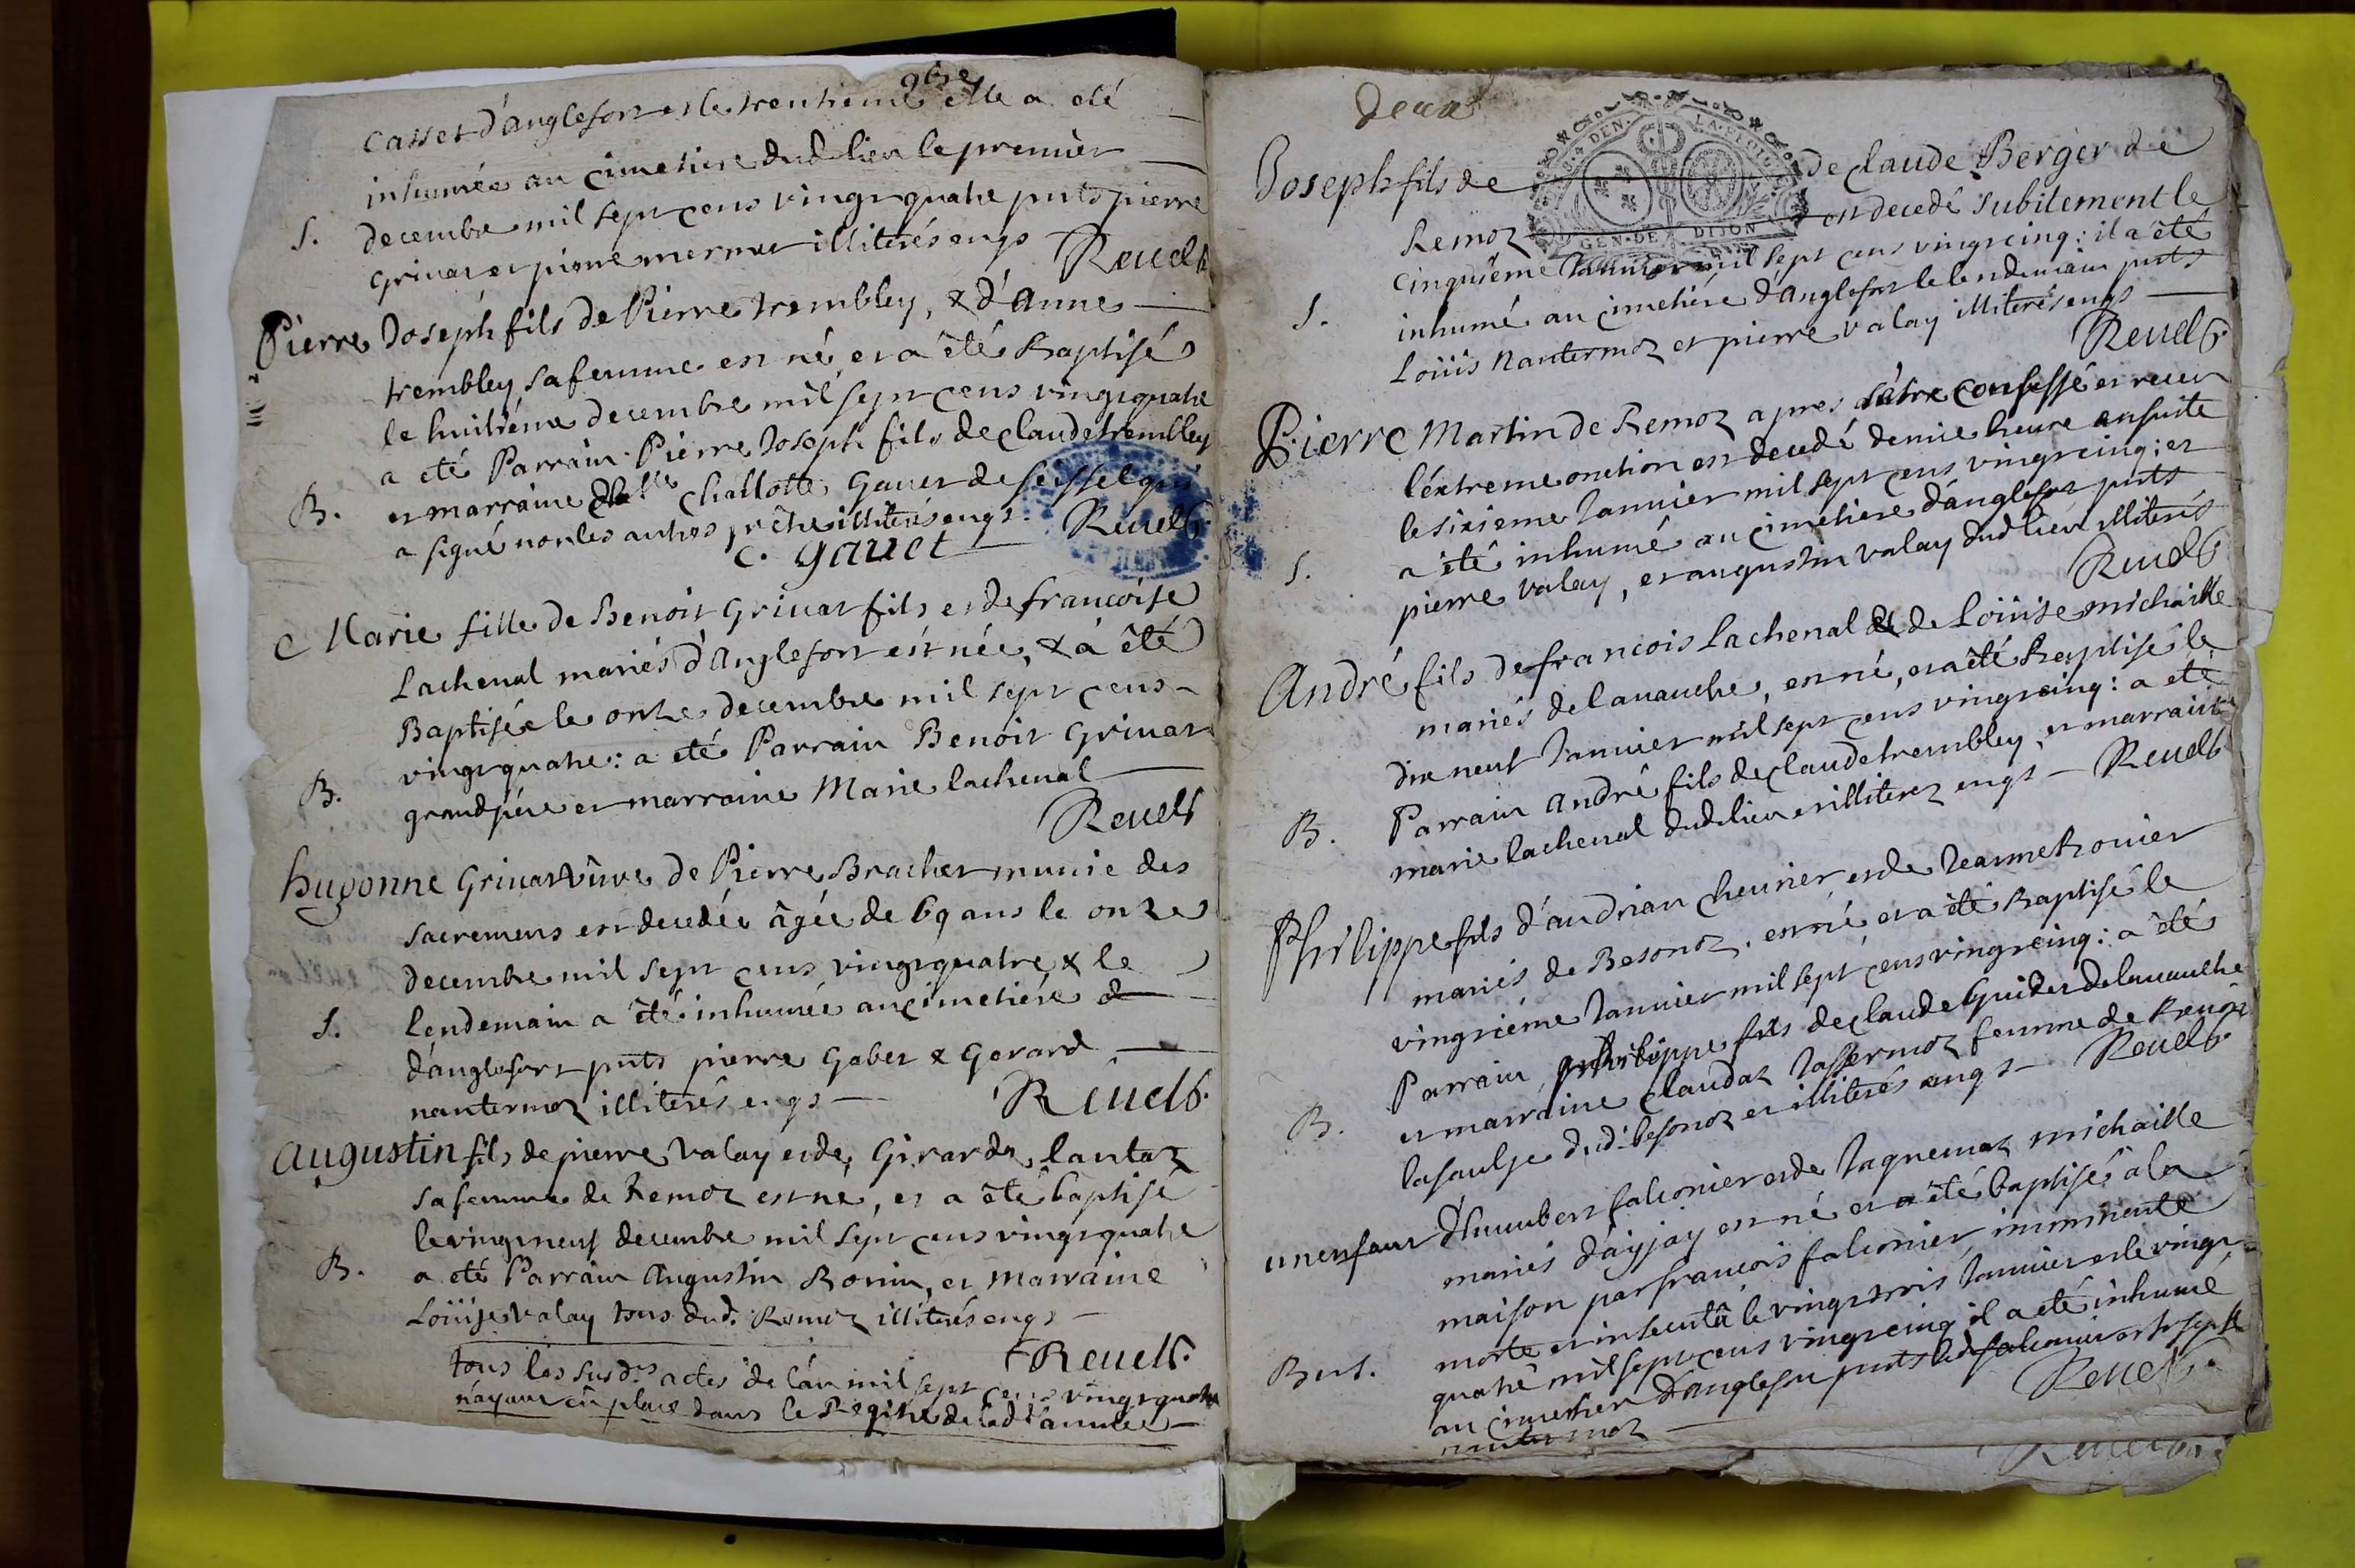 9bre
Casset d'anglefort et le trentieme elle a eté
inhumée au cimetiere dud. lieu le premier
S. decembre mil sept cens vingt quatre pnts pierre
grivat et pierre mermet illiterés enqs Reuel
Pierre Joseph fils de Pierre trembley, & d'Anne
trembley sa femme est né, et a êté Baptisé
le huitiéme decembre mil sept cens vingt quatre
a eté Parrain Pierre Joseph fils de claude trembley
B. et marraine dlle challotte Gavet de seissel qui
a signé non les autres pr être illiterés enqs. Reuel
C. gavet
Marie fille de Benoit Grivat fils et de francoise
Lachenal mariés d'Anglefort est née, & a êté
Baptisée le onze decembre mil sept cens
vingt quatre: a eté Parrain Benoit Grivat
B. grandpére et marraine Marie lachenal
Reuel
hugonne Grivat veuve de Pierre Brachet munie des
sacremens est decedée âgée de 69 ans le onze
decembre mil sept cens vingt quatre & le
S. lendemain a êté inhumée au cimetiére d
d'anglefort pnts pierre Gobet & Gerard
nantermoz illiterés enqs Reuel
Augustin fils de pierre Valay et de Girarde lantaz
sa femme de Remoz est né, et a êté baptisé
le vingt neuf decembre mil sept cens vingt quatre
B. a eté Parrain Augustin Bonin, et marraine
Loüise Valay tous dud. Remoz illiterés enqs
Reuel
tous les susds actes de l'an mil sept cens vingt quatre
n'ayant eû place dans le Registre de lad. année
Deux
GEN. DE DIJON
Joseph fils de de claude Berger de
Remoz est decedé subitement le
cinquiéme Janvier mil sept cens vingt cinq: il a êté
S. inhumé au cimetiére d'Anglefort le lendemain pnts
Loüis Nantermoz et pierre valay illiterés enqs
Reuel
Pierre Martin de Remoz apres s'être confessé et receu
l'éxtreme onction est decedé demie heure ensuite
le sixieme Janvier mil sept cens vingt cinq; et
a êté inhumé au cimetiere d'anglefort pnts
S. pierre valay, et augustin valay dud. lieu illiterés
Reuel
André fils de francois Lachenal & de Loüise michaille
mariés de lavanche, est né, et a êté Baptisé le
dix neuf Janvier mil sept cens vingt cinq: a eté
B. Parrain André fils de claude trembley, et marraine
marie lachenal dud. lieu et illiterez enqs Reuel
Philippe fils d'andrian chevrier et de Jeanne Rovier
mariés de Besonoz, est né et a êté Baptisé le
vingtiéme Janvier mil sept cens vingt cinq: a êté
Parrain philippe fils de claude Guider de lavanche
B. et marraine claudaz Jassermoz femme de Benoit
lasaulse dud. besonoz et illiterés enqs Reuel
un enfant d'humbert falconier et de Jaquemaz michaille
mariés d'ayjay est né et a êté baptisé à la
maison par francois falconier, imminente
morte et insecutâ le vingt trois Janvier et le vingt
B et S. quatre mil sept cens vingt cinq il a eté inhumé
au cimetier d'anglefort pnts led. falconier et Joseph
nantermoz Reuel